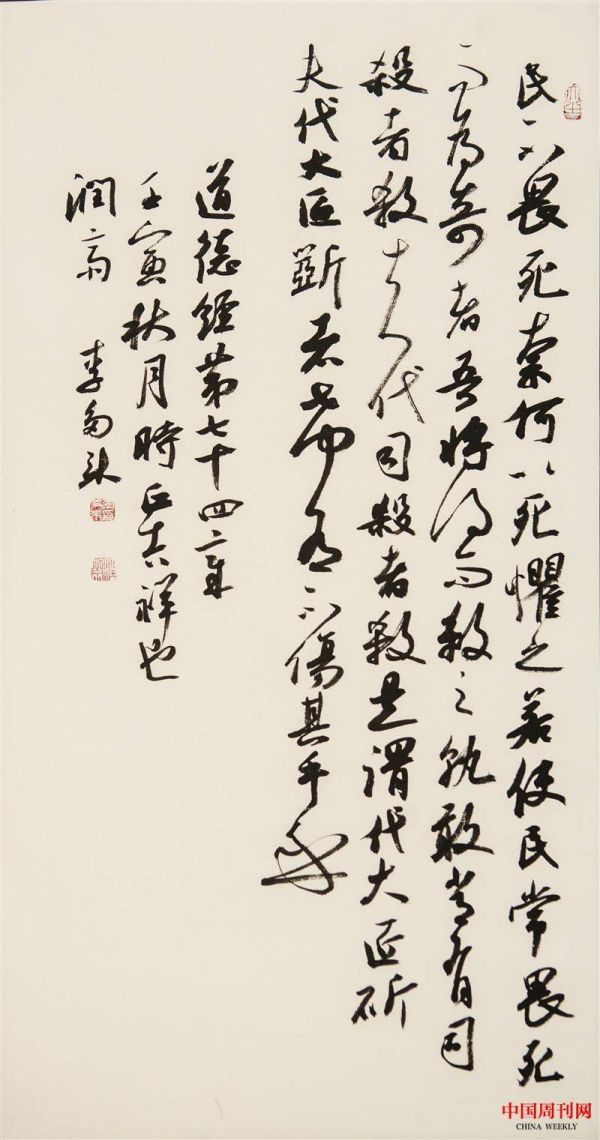 民不畏死柰何以死懼之若使民常畏死
而為奇者吾將得而殺之孰敢常有司
殺者殺夫代司殺者殺是謂代大匠斫
夫代大匠斲者希有不傷其手矣
道德經第七十四章
壬寅秋月時吉祥也
潤齋 李
中国周刊网
CHINA WEEKLY